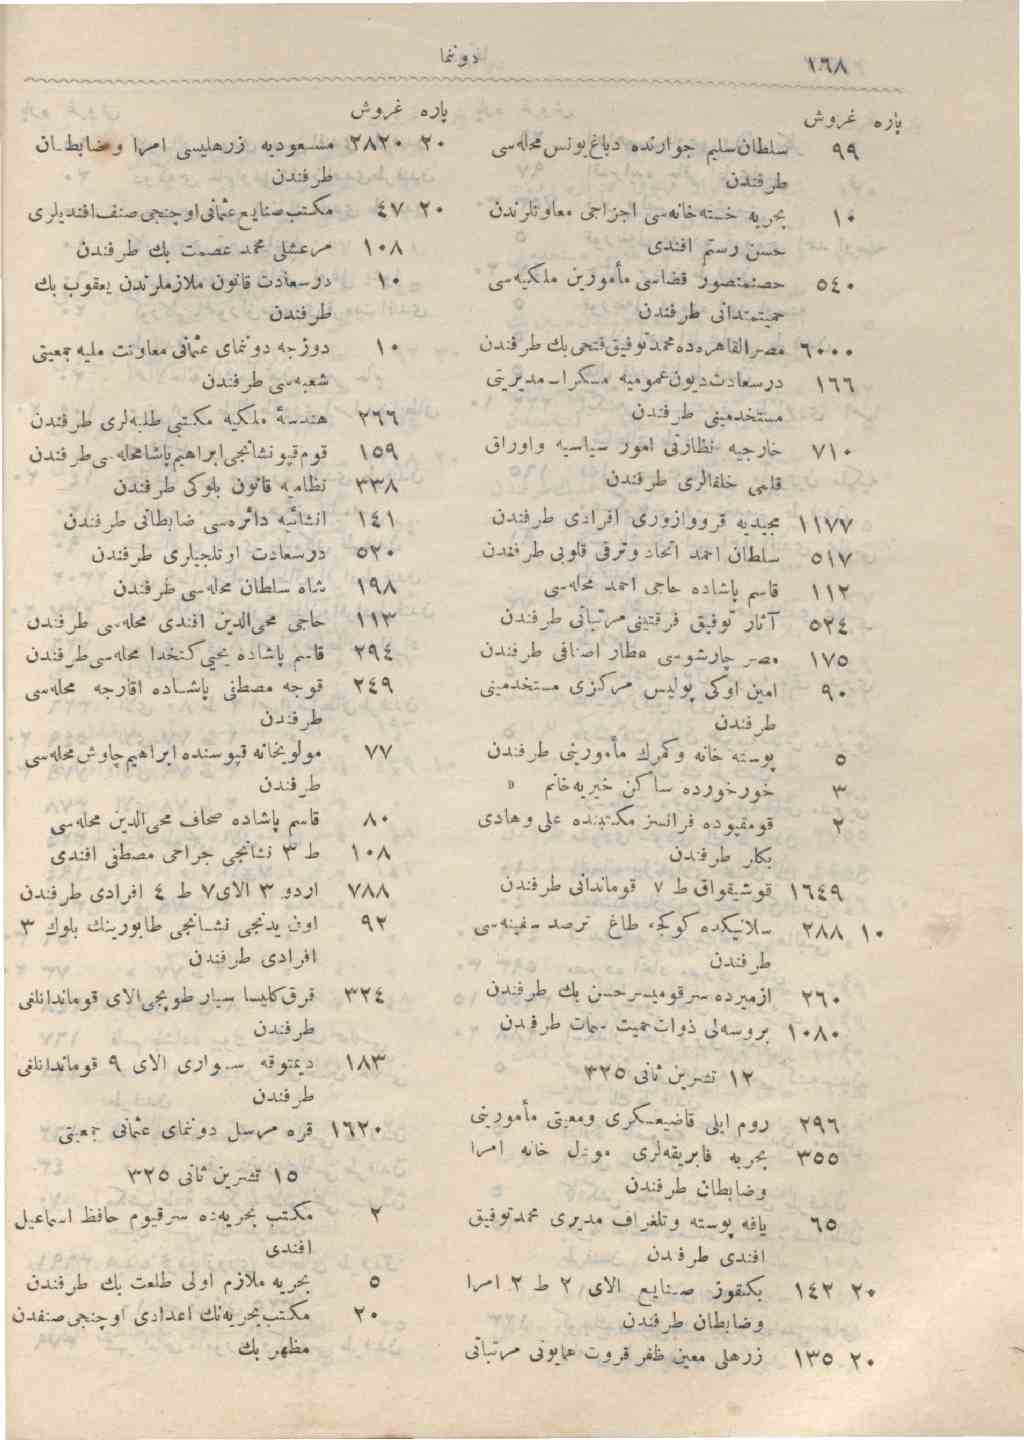 ١٦٨
دوننما
پاره غروش
٩٩ سلطان سليم جوارنده دباغ يونس محله‌سى
طرفندن
١٠ بحريه خسته‌خانه‌سى اجزاجى معاونلرندن
حسن رستم افندى
٥٤٠ حصنمنصور قضاسى مأمورين ملكيه‌سى
حميتمندانى طرفندن
٦٠٠٠ مصر القاهره‌ده محمد توفيق فتحى بك طرفندن
١٦٦ درسعادت ديون عموميه مسكرات مديريتى
مستخدمينى طرفندن
٧١٠ خارجيه نظارتى امور سياسيه واوراق
قلمى خلفالرى طرفندن
١١٧٧ مجيديه قرووازورى افرادى طرفندن
٥١٧ سلطان احمد اتحاد وترقى قلوبى طرفندن
١١٢ قاسم پاشاده حاجى احمد محله‌سى
٥٢٤ آثار توفيق فرقتينى مرتباتى طرفندن
١٧٥ مصر چارشوسى عطار اصنافى طرفندن
٩٠ امين اوكى پوليس مركزى مستخدمينى
طرفندن
٥ پوسته خانه وكمرك مأمورينى طرفندن
٣ خورخورده ساكن خيريه خانم »
٢ قومقپوده فرانسز مكتبنده على وهادى
بكلر طرفندن
١٦٤٩ قوشيقواق ط ٧ قوماندانى طرفندن
١٠ ٢٨٨ سلانيكده كوكجه طاغ ترصد سفينه‌سى
طرفندن
٢٦٠ ازميرده سرقوميسر حسن بك طرفندن
١٠٨٠ بروسه‌لى ذوات حميت سمات طرفندن
١٢ تشرين ثانى ٣٢٥
٢٩٦ روم ايلى قاضيعسكرى ومعيتى مأمورينى
٣٥٥ بحريه فابريقه‌لرى مودل خانه امرا
وضابطان طرفندن
٦٥ يافه پوسته وتلغراف مديرى محمد توفيق
افندى طرفندن
٢٠ ١٤٢ بكتقوز صنايع الاى ٢ ط ٢ امرا
وضابطان طرفندن
٢٠ ١٣٥ زرهلى معين ظفر قروت همايونى مرتباتى
پاره غروش
٢٠ ٢٨٢٠ مسعوديه زرهليسى امرا وضابطان
طرفندن
٢٠ ٤٧ مكتب صنايع عثمانى اوچنجى صنف افنديلرى
١٠٨ مرعشلى محمد عصمت بك طرفندن
١٠ درسعادت قانون ملازملرندن يعقوب بك
طرفندن
١٠ دوزجه دوننماى عثمانى معاونت مليه جمعيتى
شعبه‌سى طرفندن
٢٦٦ هندسهٔ ملكيه مكتبى طلبه‌لرى طرفندن
١٥٩ قوم قپو نشانجى ابراهيم پاشا محله‌سى طرفندن
٣٣٨ نظاميه قانون بلوكى طرفندن
١٤١ انشائيه دائره‌سى ضابطانى طرفندن
٥٢٠ درسعادت اوتلجيلرى طرفندن
١٩٨ شاه سلطان محله‌سى طرفندن
١١٣ حاجى محى‌الدين افندى محله‌سى طرفندن
٢٩٤ قاسم پاشاده يحيى كتخدا محله‌سى طرفندن
٢٤٩ قوجه مصطفى پاشاده اقارجه محله‌سى
طرفندن
٧٧ مولويخانه قپوسنده ابراهيم چاوش محله‌سى
طرفندن
٨٠ قاسم پاشاده صحاف محى‌الدين محله‌سى
١٠٨ ط ٣ نشانجى جراحى مصطفى افندى
٧٨٨ اردو ٣ الاى ٧ ط ٤ افرادى طرفندن
٩٢ اون يدنجى نشانجى طابورينك بلوك ٣
افرادى طرفندن
٣٢٤ قرق كليسا سيار طوپجى الاى قوماندانلغى
طرفندن
١٨٣ ديمتوقه سوارى الاى ٩ قوماندانلغى
طرفندن
١٦٢٠ قره مرسل دوننماى عثمانى جمعيتى
١٥ تشرين ثانى ٣٢٥
٢ مكتب بحريه‌ده سرقيوم حافظ اسماعيل
افندى
٥ بحريه ملازم اولى طلعت بك طرفندن
٢٠ مكتب بحريه‌نك اعدادى اوچنجى صنفدن
مظهر بك